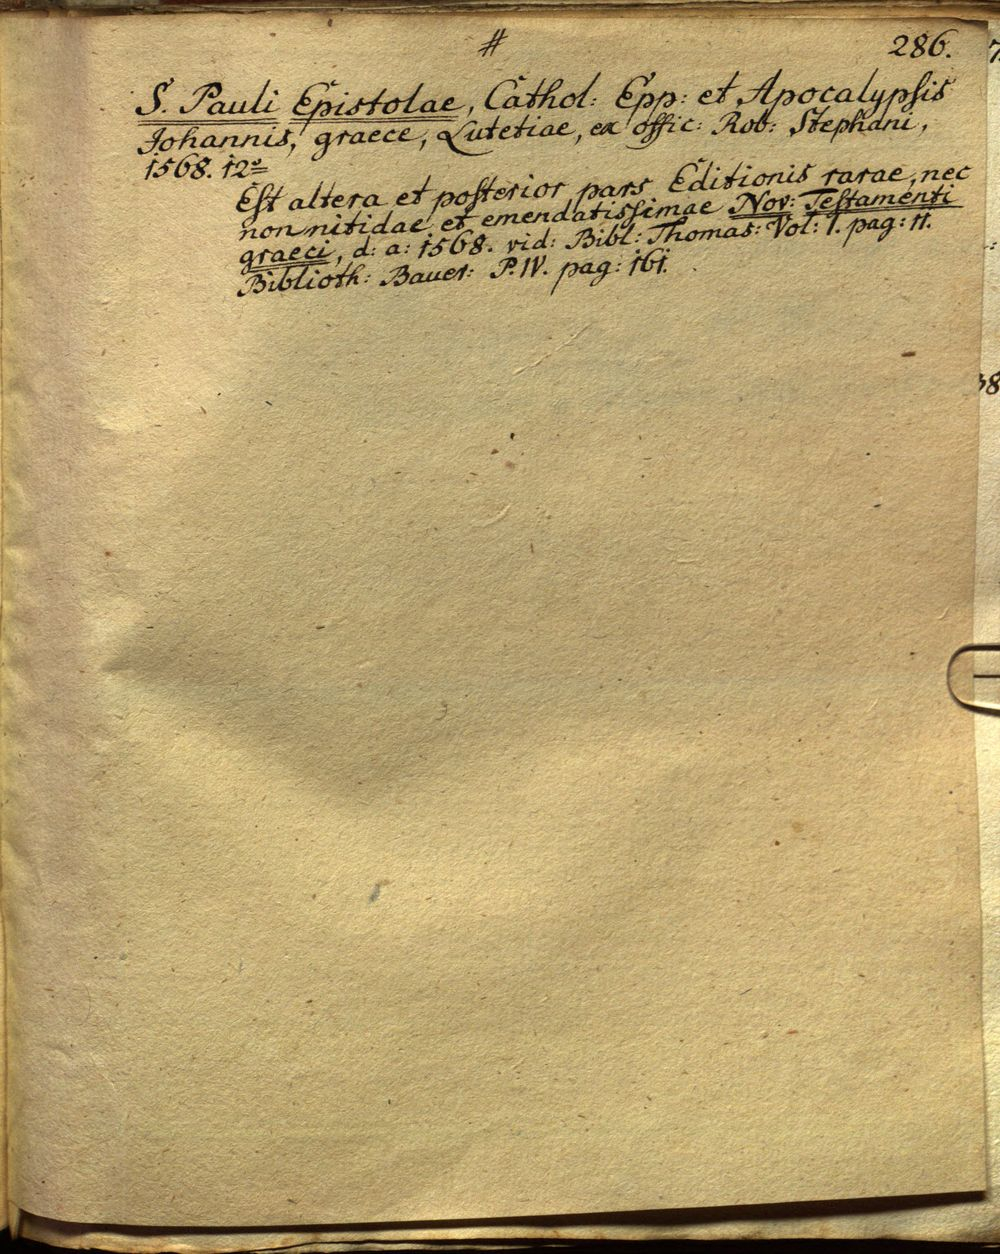 # 286.
S. Pauli Epistolae, Cathol: Epp: et Apocalypsis
Johannis, graece, Lutetiae, ex offic: Rob: Stephani,
1568. 12o
Est altera et posterior pars Editionis rarae, nec
non nitidae et emendatissimae Nov: Testamenti
graeci, d: a: 1568. vid: Bibl: Thomas: Vol: I. pag: 11.
Biblioth: Bauer: P. IV. pag: 161.